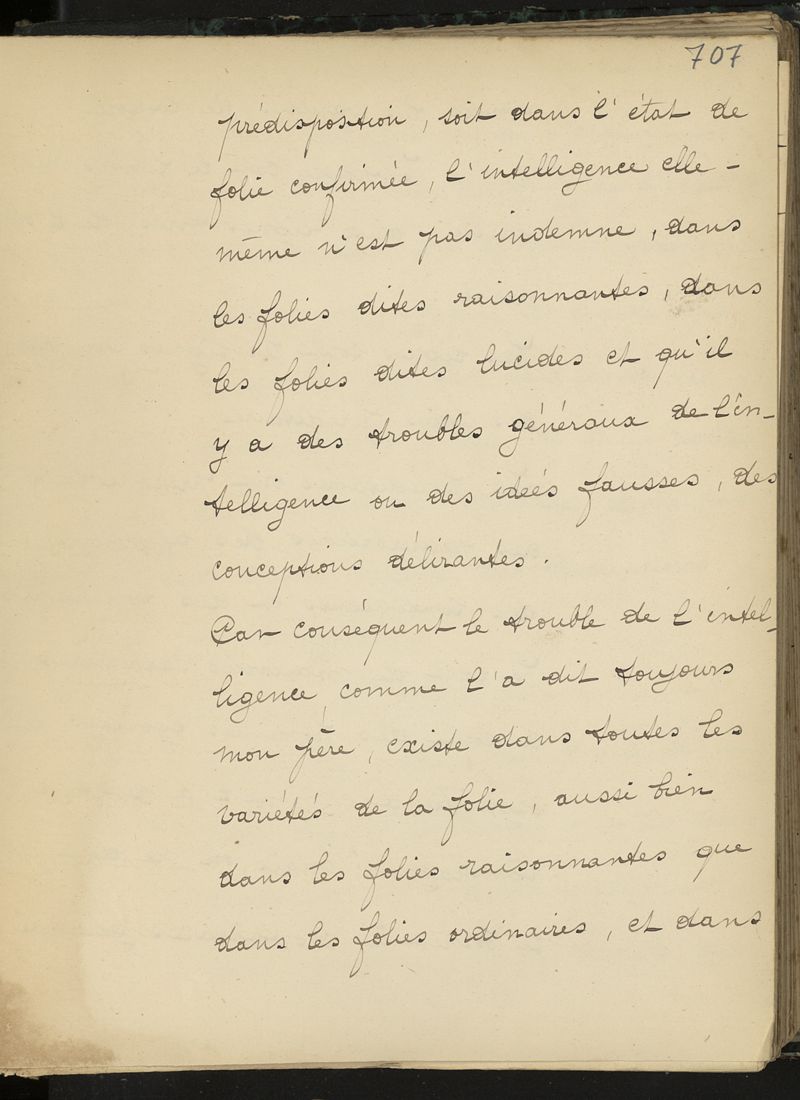 707
prédisposition, soit dans l'état de
folie confirmée, l'intelligence elle-
même n'est pas indemne, dans
les folies dites raisonnantes, dans
les folies dites lucides et qu'il
y a des troubles généraux de l'in-
telligence ou des ideés fausses, des
conceptions délirantes.
Par conséquent le trouble de l'intel-
ligence, comme l'a dit toujours
mon père, existe dans toutes les
variétés de la folie, aussi bien
dans les folies raisonnantes que
dans les folies ordinaires, et dans